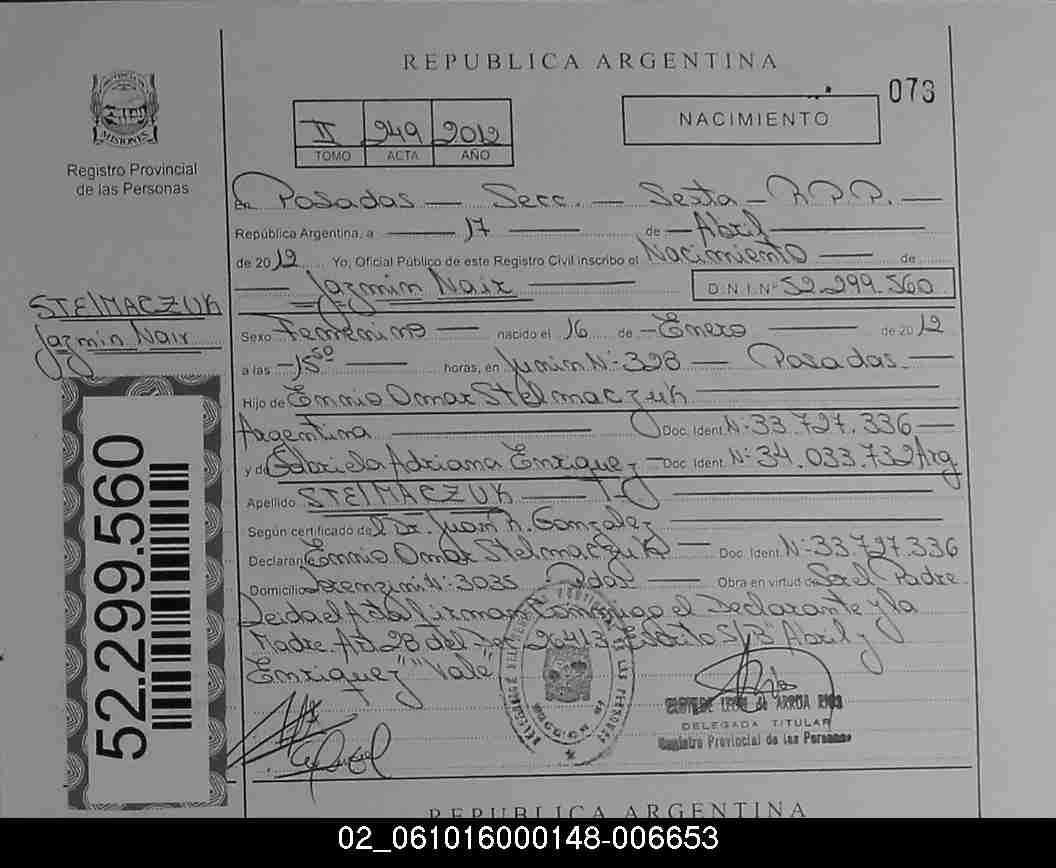 REPUBLICA ARGENTINA
073
NACIMIENTO
II 249 2012
TOMO ACTA AÑO
MISIONES
Registro Provincial
de las Personas
en Posadas — Secc. — Sexta — R.P.P. —
República Argentina, a — 17 — de — Abril —
de 2012 Yo, Oficial Público de este Registro Civil inscribo el Nacimiento — de
— Jazmin Nair — D.N.I. Nº 52.299.560
STELMACZUK
Jazmin Nair
Sexo Femenino — nacido el 16 de — Enero — de 2012
a las — 15 50 — horas, en Junin Nº 328 — Posadas. —
Hijo de Ennio Omar Stelmaczuk
Argentina — Doc. Ident. Nº 33.727.336 —
y de Gabriela Adriana Enriquez — Doc. Ident. Nº 34.033.732 Arg
Apellido STELMACZUK —
Según certificado del Dr. Juan R. Gonzalez
Declarante Ennio Omar Stelmaczuk — Doc. Ident. Nº 33.727.336
Domicilio Lorenzini Nº 3035 Pdas — Obra en virtud de Ser el Padre
Leida el Acta firman conmigo el Declarante y la
Madre. Art 28 del 20413 Escrito S/B "Abril y
Enriquez" "Vale"
52.299.560
DELEGADA TITULAR
Registro Provincial de las Personas
REPUBLICA ARGENTINA
02_061016000148-006653